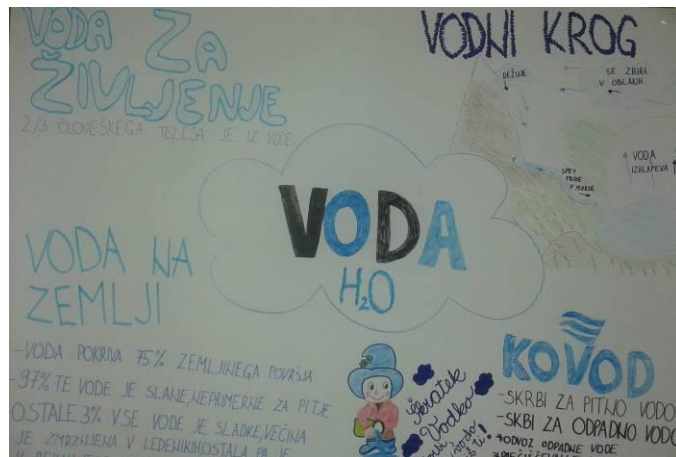 VODA ZA
ŽIVLJENJE
2/3 ČLOVEŠKEGA TELESA JE IZ VODE
VODNI KROG
DEŽUJE
SE ZBIRA
V OBLAKIH
VODA
IZHLAPEVA
SPET
PRIDE
V MORJE
VODA
H2O
VODA NA
ZEMLJI
-VODA POKRIVA 75% ZEMLJINEGA POVRŠJA
-97% TE VODE JE SLANE, NEPRIMERNE ZA PITJE
OSTALE 3% VSE VODE JE SLADKE, VEČINA
JE ZMRZNJENA V LEDENIKIH. OSTALA PA JE
Škratek
Vodko
vodo
KOVOD
-SKRBI ZA PITNO VODO
-SKBI ZA ODPADNO VODO
*ODVOZ ODPADNE VODE